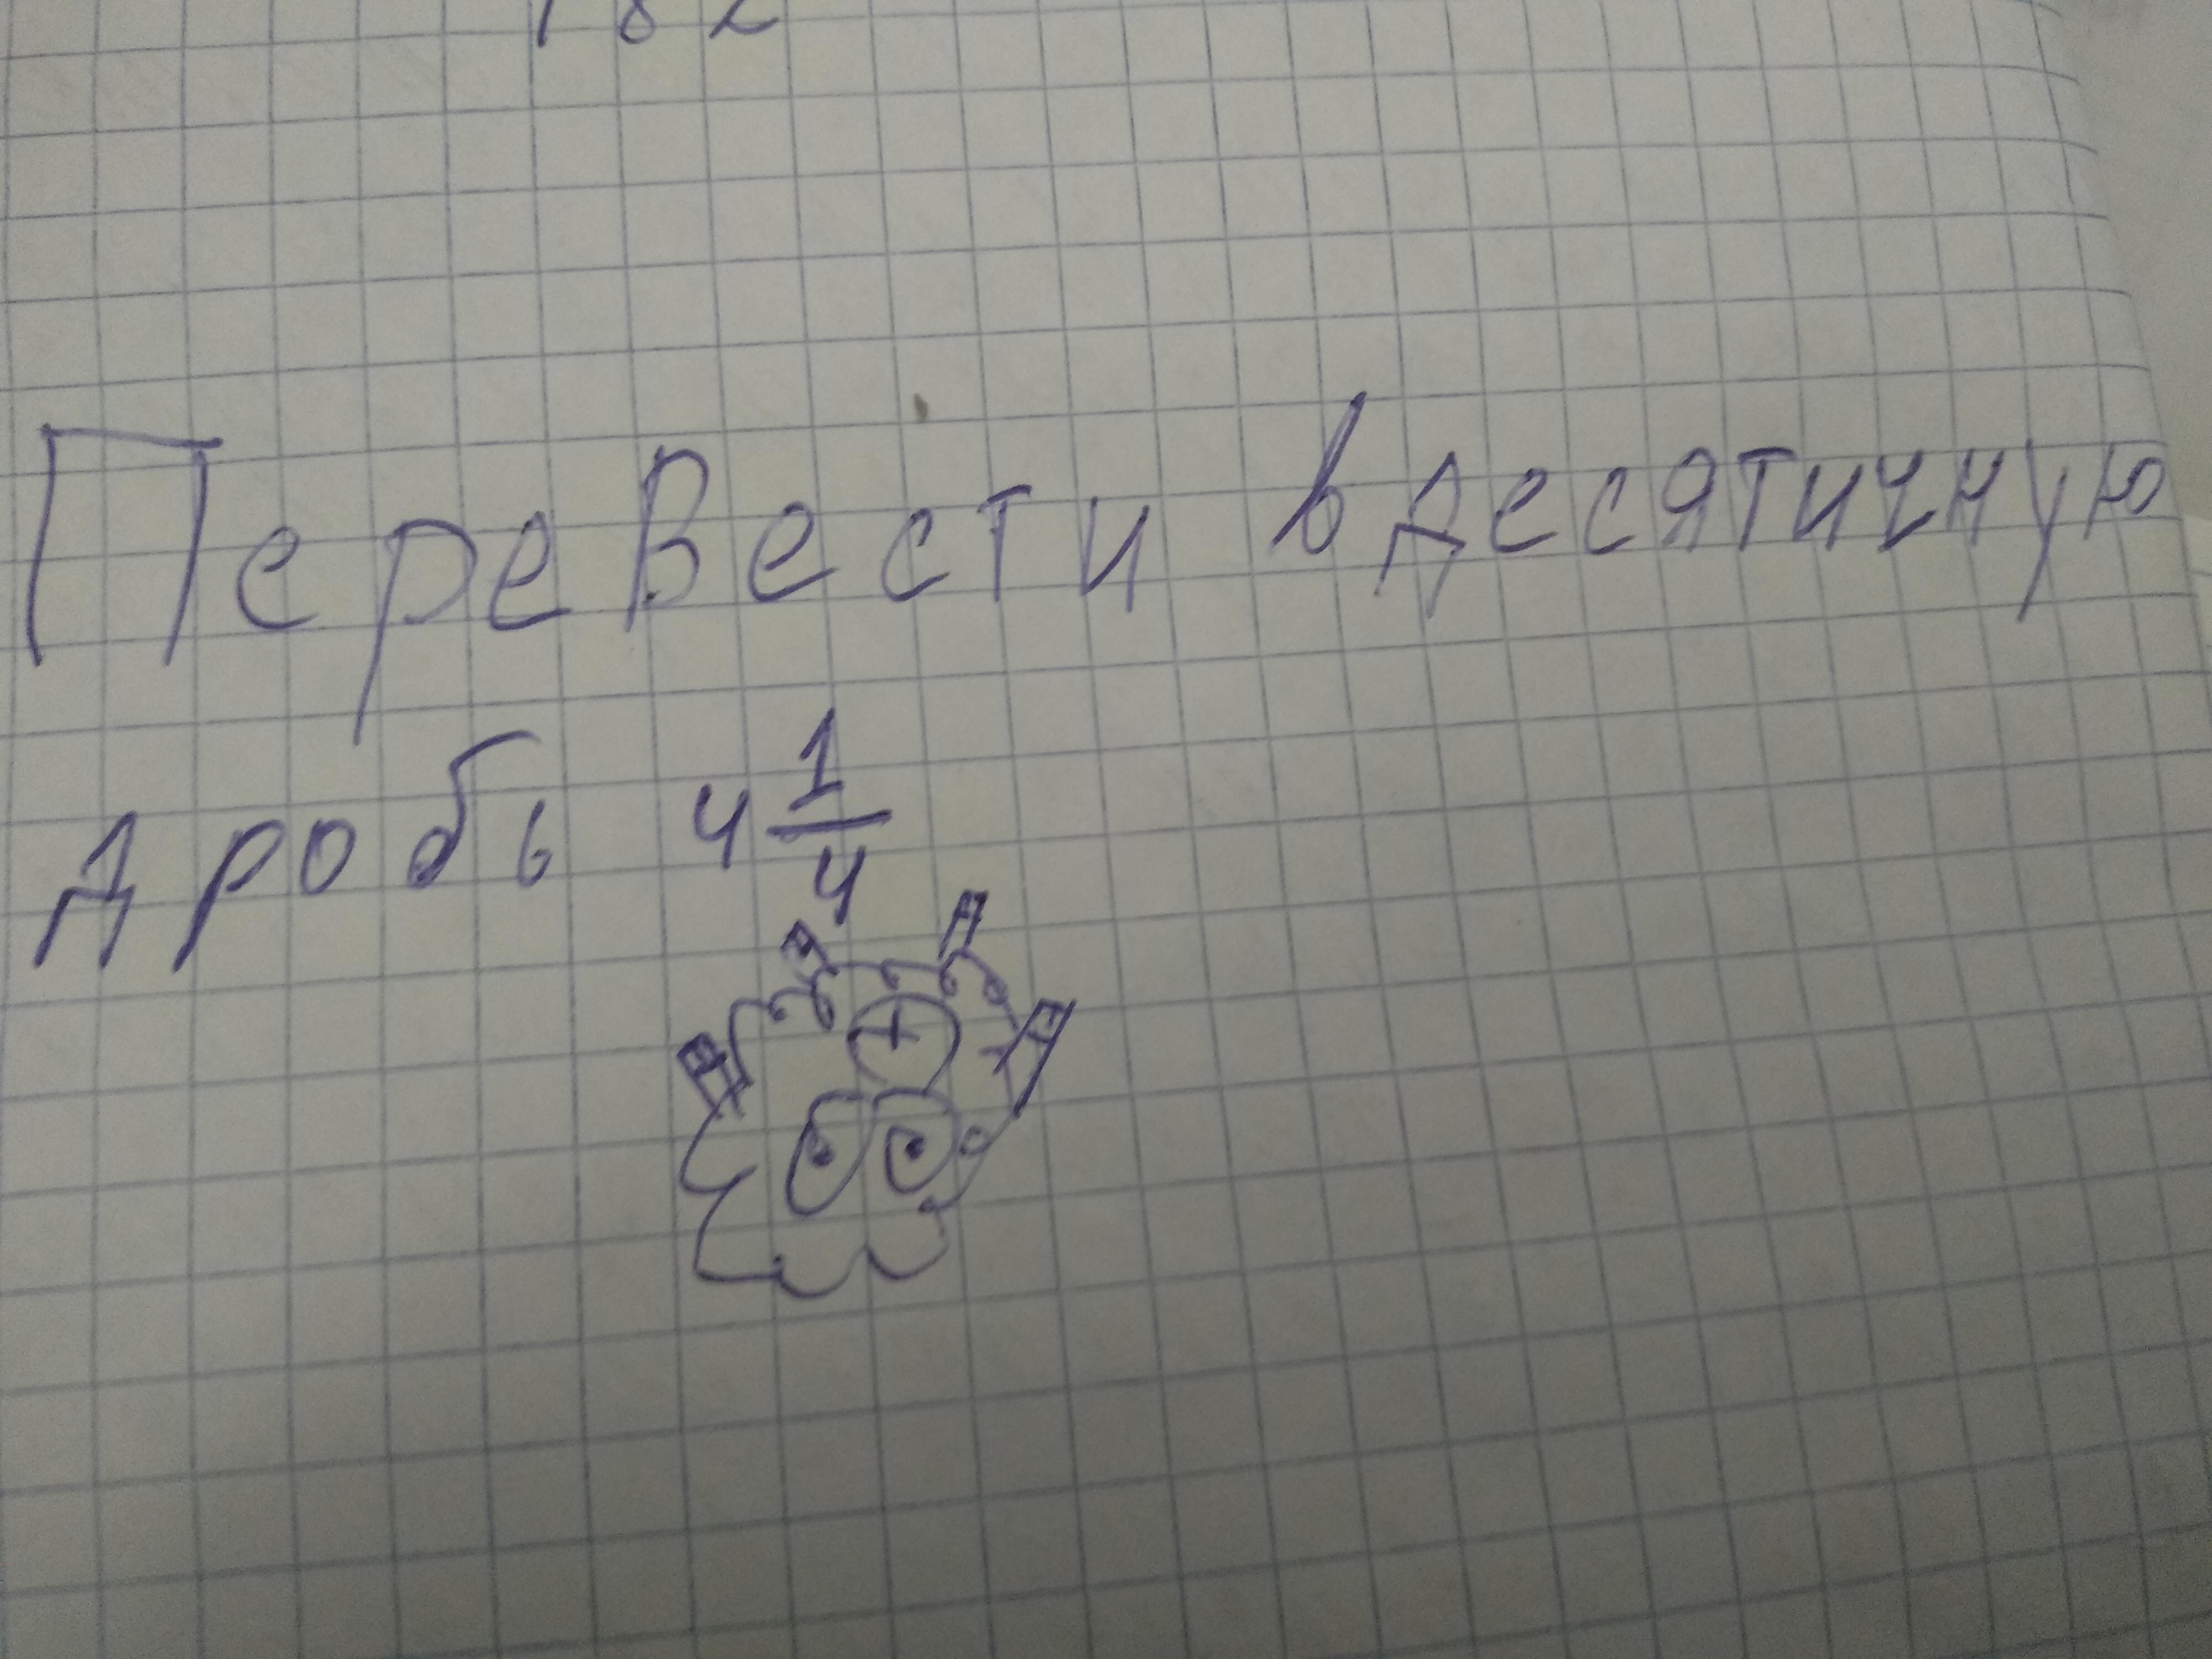 Перевести в десятичную
дробь 4 1/4